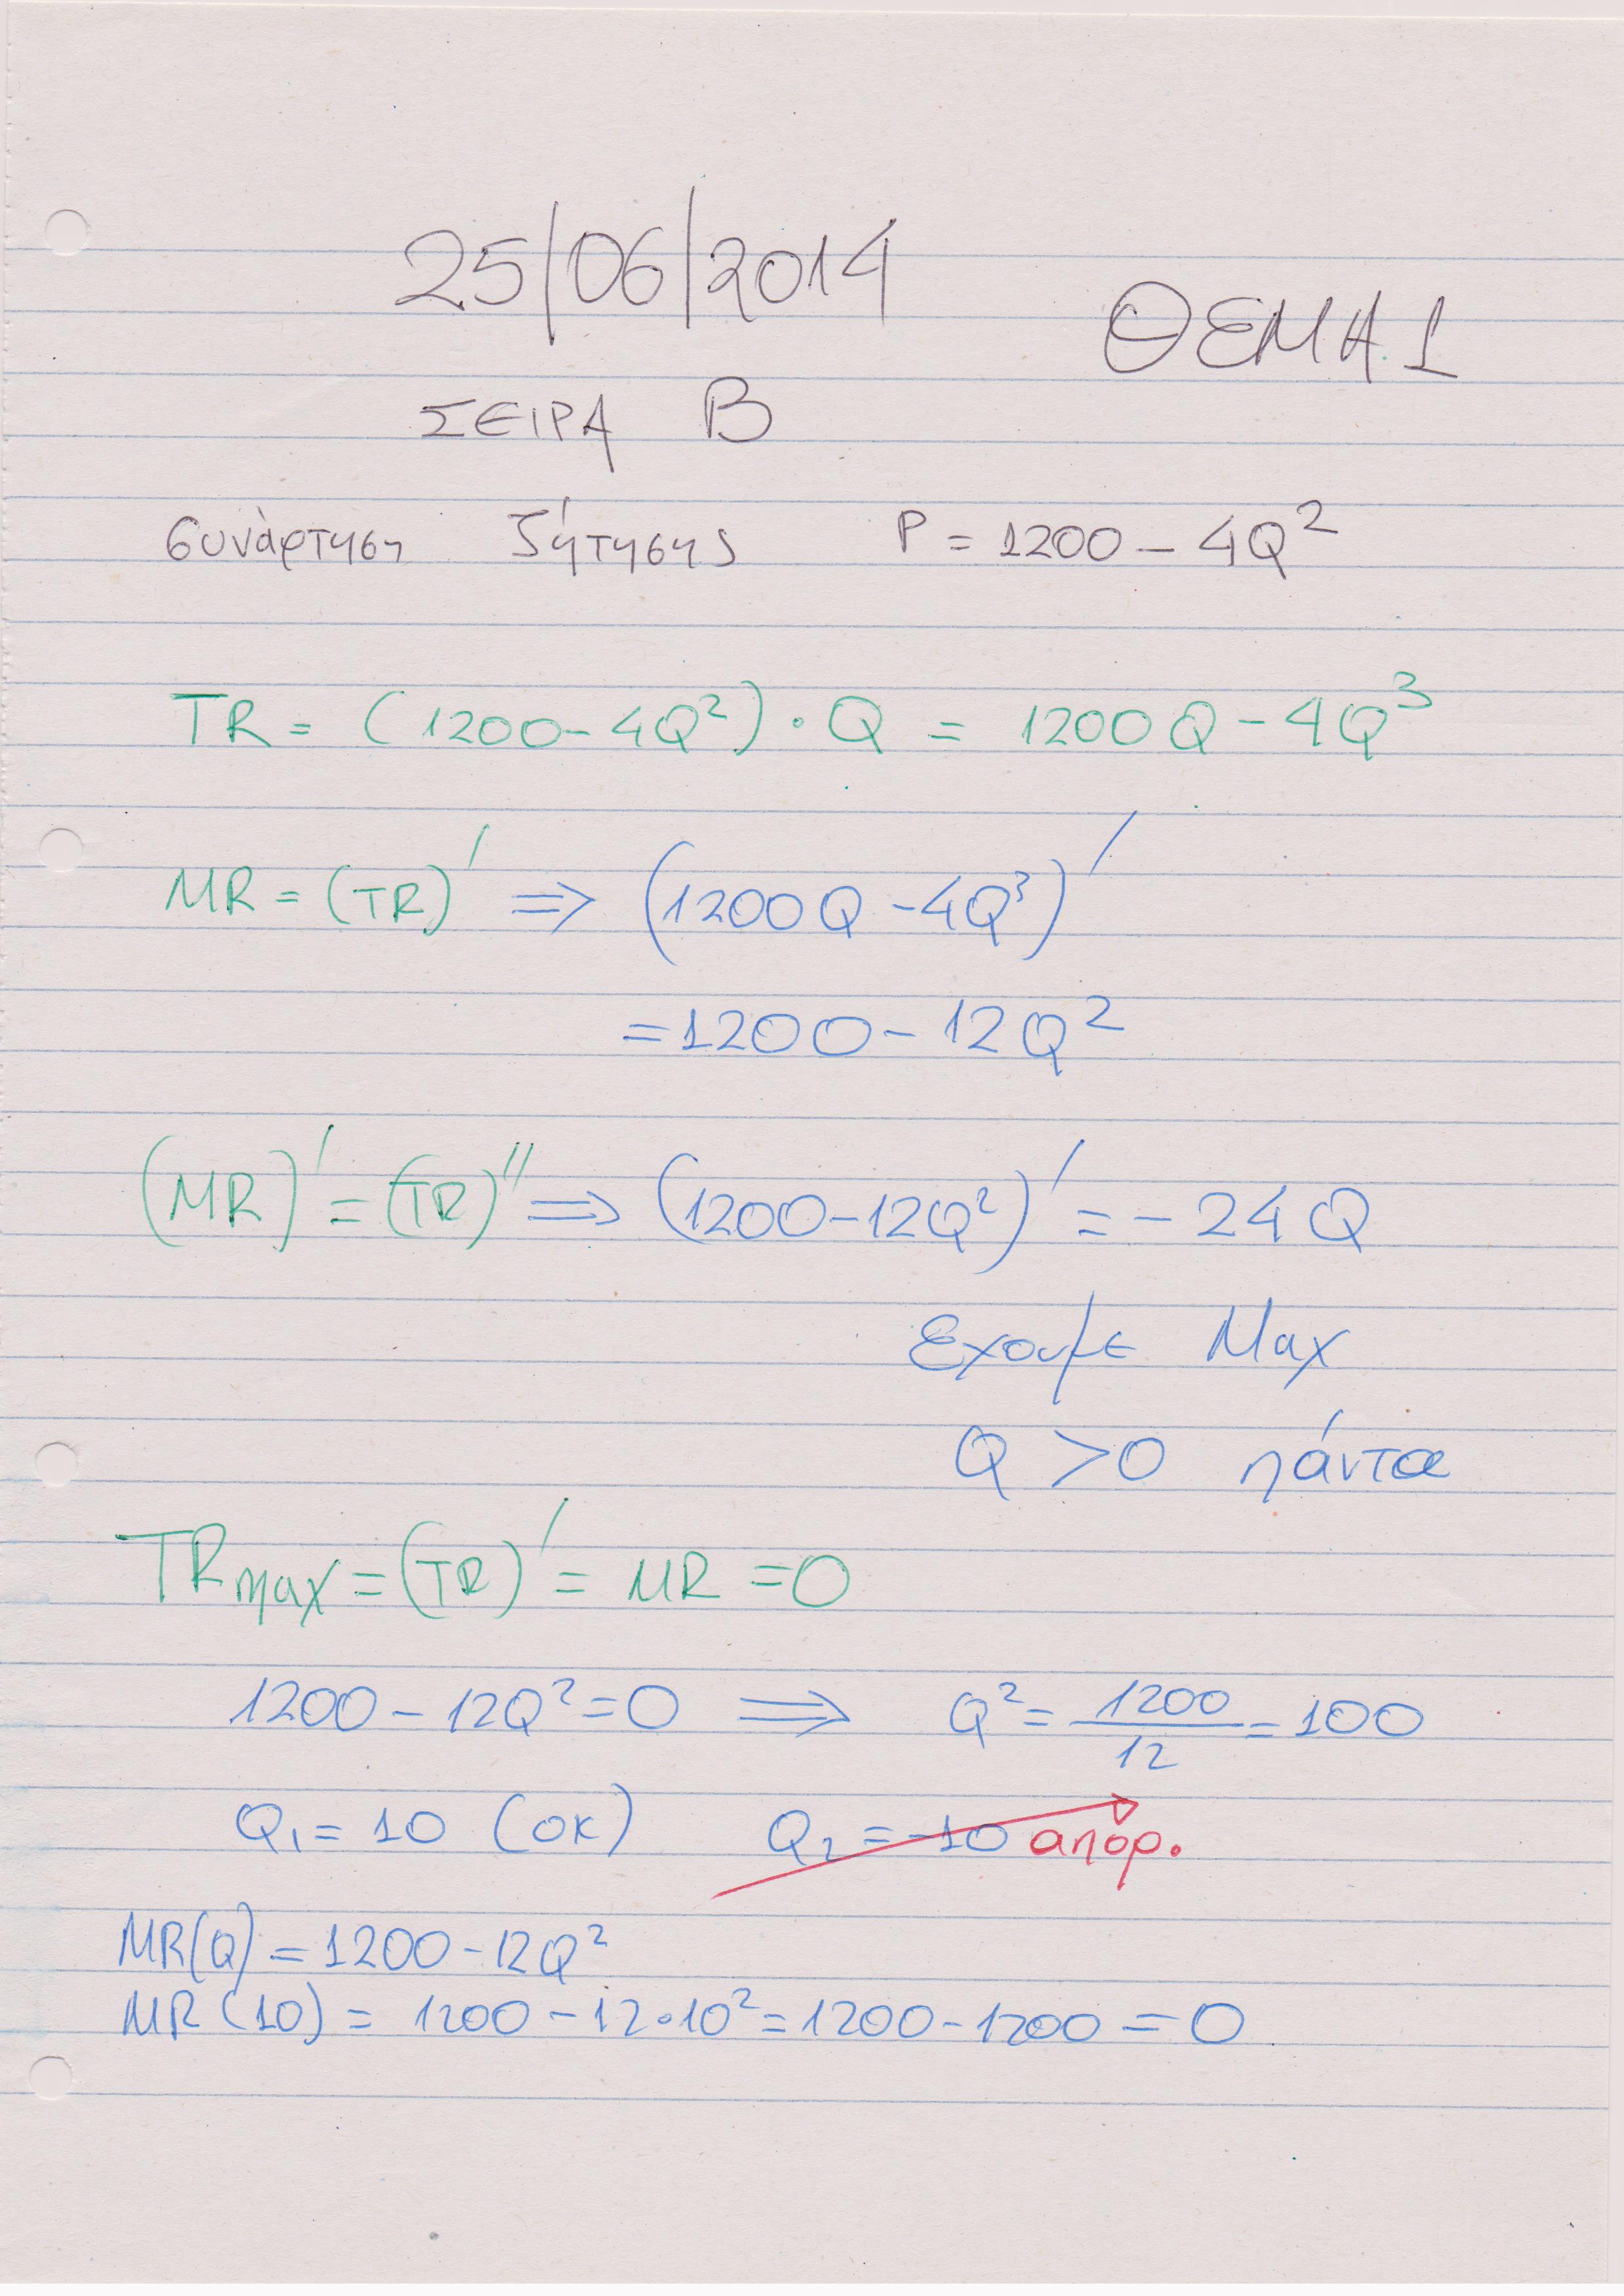 25/06/2014
ΘΕΜΑ.1
ΣΕΙΡΑ Β
συνάρτηση ζήτησης P = 1200 - 4Q²
TR = (1200 - 4Q²) · Q = 1200Q - 4Q³
MR = (TR)' ⇒ (1200Q - 4Q³)'
= 1200 - 12Q²
(MR)' = (TR)'' ⇒ (1200 - 12Q²)' = - 24Q
Εχουμε Max
Q > 0 πάντα
TRmax = (TR)' = MR = 0
1200 - 12Q² = 0 ⇒ Q² = 1200/12 = 100
Q₁ = 10 (οκ) Q₂ = -10 απορ.
MR(Q) = 1200 - 12Q²
MR(10) = 1200 - 12·10² = 1200 - 1200 = 0